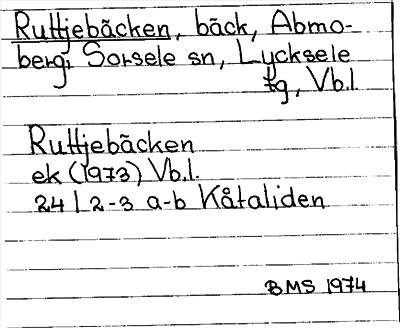 Ruttjebäcken, bäck, Abmo-
berg, Sorsele sn, Lycksele
tg, Vb.l.
Ruttjebäcken
ek (1973) Vb.l.
24 I 2-3 a-b Kåtaliden
BMS 1974